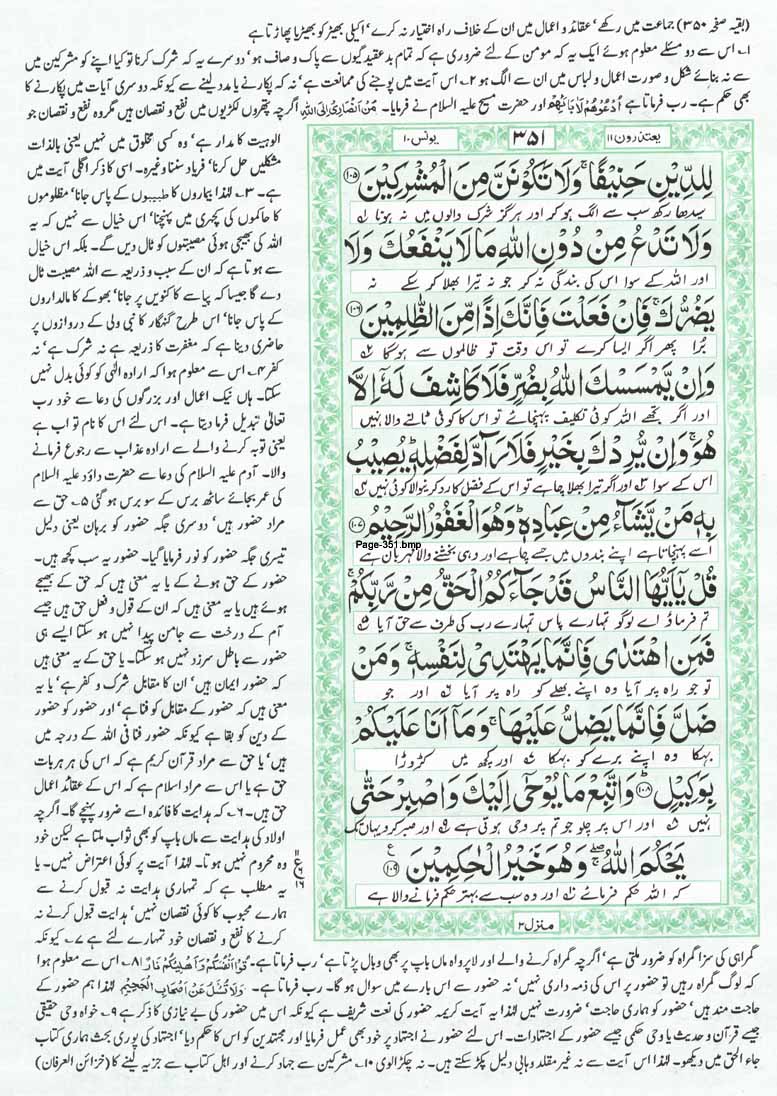 (بقیہ صفحہ ۳۵۰) جماعت میں رکھے، عقائد و اعمال میں ان کے خلاف راہ اختیار نہ کرے، اکیلی بھیڑ کو بھیڑیا پھاڑتا ہے
۱۔ اس سے دو مسئلے معلوم ہوئے ایک یہ کہ مومن کے لئے ضروری ہے کہ تمام بدعقیدگیوں سے پاک و صاف ہو، دوسرے یہ کہ شرک کرنا تو کیا اپنے کو مشرکین میں
سے نہ بنائے شکل و صورت اعمال و لباس میں ان سے الگ ہو ۲۔ اس آیت میں پوجنے کی ممانعت ہے، نہ کہ پکارنے یا مدد لینے سے کیونکہ دوسری آیات میں پکارنے کا
بھی حکم ہے۔ رب فرماتا ہے اُدْعُوْهُمْ لِاٰبَآئِهِمْ اور حضرت مسیح علیہ السلام نے فرمایا۔ مَنْ اَنْصَارِیْ اِلَی اللّٰہِ اگرچہ پتھروں لکڑیوں میں نفع و نقصان ہیں مگر وہ نفع و نقصان جو
یعتذرون ۱۱ ۳۵۱ یونس ۱۰
لِلدِّیْنِ حَنِیْفًا ۚ وَلَا تَكُوْنَنَّ مِنَ الْمُشْرِكِیْنَ ۱۰۵
سیدھا رکھ سب سے الگ ہو کر اور ہرگز شرک والوں میں نہ ہونا
وَلَا تَدْعُ مِنْ دُوْنِ اللّٰهِ مَا لَا یَنْفَعُكَ وَلَا
اور اللہ کے سوا اس کی بندگی نہ کر جو نہ تیرا بھلا کر سکے نہ
یَضُرُّكَ ۚ فَاِنْ فَعَلْتَ فَاِنَّكَ اِذًا مِّنَ الظّٰلِمِیْنَ ۱۰۶
بُرا پھر اگر ایسا کرے تو اس وقت تو ظالموں سے ہوگا
وَاِنْ یَّمْسَسْكَ اللّٰهُ بِضُرٍّ فَلَا كَاشِفَ لَهٗۤ اِلَّا
اور اگر تجھے اللہ کوئی تکلیف پہنچائے تو اس کا کوئی ٹالنے والا نہیں
هُوَ ۚ وَاِنْ یُّرِدْكَ بِخَیْرٍ فَلَا رَآدَّ لِفَضْلِهٖ ؕ یُصِیْبُ
اس کے سوا اور اگر تیرا بھلا چاہے تو اس کے فضل کا رد کرنے والا کوئی نہیں
بِهٖ مَنْ یَّشَآءُ مِنْ عِبَادِهٖ ؕ وَهُوَ الْغَفُوْرُ الرَّحِیْمُ ۱۰۷
Page-351.bmp
اسے پہنچاتا ہے اپنے بندوں میں جسے چاہے اور وہی بخشنے والا مہربان ہے
قُلْ یٰۤاَیُّهَا النَّاسُ قَدْ جَآءَكُمُ الْحَقُّ مِنْ رَّبِّكُمْ ۚ
تم فرماؤ اے لوگو تمہارے پاس تمہارے رب کی طرف سے حق آیا
فَمَنِ اهْتَدٰی فَاِنَّمَا یَهْتَدِیْ لِنَفْسِهٖ ۚ وَمَنْ
تو جو راہ پر آیا وہ اپنے بھلے کو راہ پر آیا اور جو
ضَلَّ فَاِنَّمَا یَضِلُّ عَلَیْهَا ۚ وَمَاۤ اَنَا عَلَیْكُمْ
بہکا وہ اپنے برے کو بہکا اور کچھ میں کڑوڑا
بِوَكِیْلٍ ۱۰۸ وَاتَّبِعْ مَا یُوْحٰۤی اِلَیْكَ وَاصْبِرْ حَتّٰی
نہیں اور اس پر چلو جو تم پر وحی ہوتی ہے اور صبر کرو یہاں تک
یَحْكُمَ اللّٰهُ ۚ وَهُوَ خَیْرُ الْحٰكِمِیْنَ ۱۰۹
کہ اللہ حکم فرمائے اور وہ سب سے بہتر حکم فرمانے والا ہے
منزل ۳
الوہیت کا مدار ہے، وہ کسی مخلوق میں نہیں یعنی بالذات
مشکلیں حل کرنا، فریاد سننا وغیرہ۔ اسی کا ذکر اگلی آیت میں
ہے۔ ۳۔ لہٰذا بیماروں کا طبیبوں کے پاس جانا، مظلوموں
کا حاکموں کی کچہری میں پہنچنا، اس خیال سے نہیں کہ یہ
اللہ کی بھیجی ہوئی مصیبتوں کو ٹال دیں گے۔ بلکہ اس خیال
سے ہوتا ہے کہ ان کے سبب و ذریعہ سے اللہ مصیبت ٹال
دے گا جیسا کہ پیاسے کا کنویں پر جانا، بھوکے کا مالداروں
کے پاس جانا، اس طرح گنہگار کا نبی ولی کے دروازوں پر
حاضری دینا ہے کہ مغفرت کا ذریعہ ہے نہ شرک ہے، نہ
کفر ۴۔ اس سے معلوم ہوا کہ ارادہ الٰہی کو کوئی بدل نہیں
سکتا۔ ہاں نیک اعمال اور بزرگوں کی دعا سے خود رب
تعالیٰ تبدیل فرما دیتا ہے۔ اس لئے اس کا نام تواب ہے
یعنی توبہ کرنے والے سے ارادہ عذاب سے رجوع فرمانے
والا۔ آدم علیہ السلام کی دعا سے حضرت داؤد علیہ السلام
کی عمر بجائے ساٹھ برس کے سو برس ہو گئی ۵۔ حق سے
مراد حضور ہیں، دوسری جگہ حضور کو برہان یعنی دلیل
تیسری جگہ حضور کو نور فرمایا گیا۔ حضور یہ سب کچھ ہیں۔
حضور کے حق ہونے کے یا یہ معنی ہیں کہ حق کے بھیجے
ہوئے ہیں یا یہ معنی ہیں کہ ان کے قول و فعل حق ہیں جیسے
آم کے درخت سے جامن پیدا نہیں ہو سکتا ایسے ہی
حضور سے باطل سرزد نہیں ہو سکتا۔ یا حق کے یہ معنی ہیں
کہ حضور ایمان ہیں، ان کا مقابل شرک و کفر ہے، یا یہ
معنی ہیں کہ حضور کے مقابل کو فنا ہے، اور حضور کو حضور
کے دین کو بقا ہے کیونکہ حضور فنا فی اللہ کے درجہ میں
ہیں، یا حق سے مراد قرآن کریم ہے کہ اس کی ہر ہر بات
حق ہے یا اس سے مراد اسلام ہے کہ اس کے عقائد اعمال
حق ہیں۔ ۶۔ کہ ہدایت کا فائدہ اسے ضرور پہنچے گا۔ اگرچہ
اولاد کی ہدایت سے ماں باپ کو بھی ثواب ملتا ہے لیکن خود
وہ محروم نہیں ہوتا۔ لہٰذا آیت پر کوئی اعتراض نہیں۔ یا
یہ مطلب ہے کہ تمہاری ہدایت نہ قبول کرنے سے
ہمارے محبوب کا کوئی نقصان نہیں، ہدایت قبول نہ
کرنے کا نفع و نقصان خود تمہارے لئے ہے ۷۔ کیونکہ
گمراہی کی سزا گمراہ کو ضرور ملتی ہے، اگرچہ گمراہ کرنے والے اور لاپرواہ ماں باپ پر بھی وبال پڑتا ہے، رب فرماتا ہے۔ قُوْۤا اَنْفُسَكُمْ وَاَهْلِیْكُمْ نَارًا ۸۔ اس سے معلوم ہوا
کہ لوگ گمراہ رہیں تو حضور پر اس کی ذمہ داری نہیں، نہ حضور سے اس بارے میں سوال ہو گا۔ رب فرماتا ہے۔ وَلَا تُسْئَلُ عَنْ اَصْحٰبِ الْجَحِیْمِ لہٰذا ہم حضور کے
حاجت مند ہیں، حضور کو ہماری حاجت، ضرورت نہیں لہٰذا یہ آیت کریمہ حضور کی نعت شریف ہے کیونکہ اس میں حضور کی بے نیازی کا ذکر ہے ۹۔ خواہ وحی حقیقی
جیسے قرآن و حدیث یا وحی حکمی جیسے حضور کے اجتہادات۔ اس لئے حضور نے اجتہاد پر خود بھی عمل فرمایا اور مجتہدین کو اس کا حکم دیا، اجتہاد کی پوری بحث ہماری کتاب
جاء الحق میں دیکھو۔ لہٰذا اس آیت سے نہ غیر مقلد وہابی دلیل پکڑ سکتے ہیں۔ نہ چکڑالوی ۱۰۔ مشرکین سے جہاد کرنے اور اہل کتاب سے جزیہ لینے کا (خزائن العرفان)